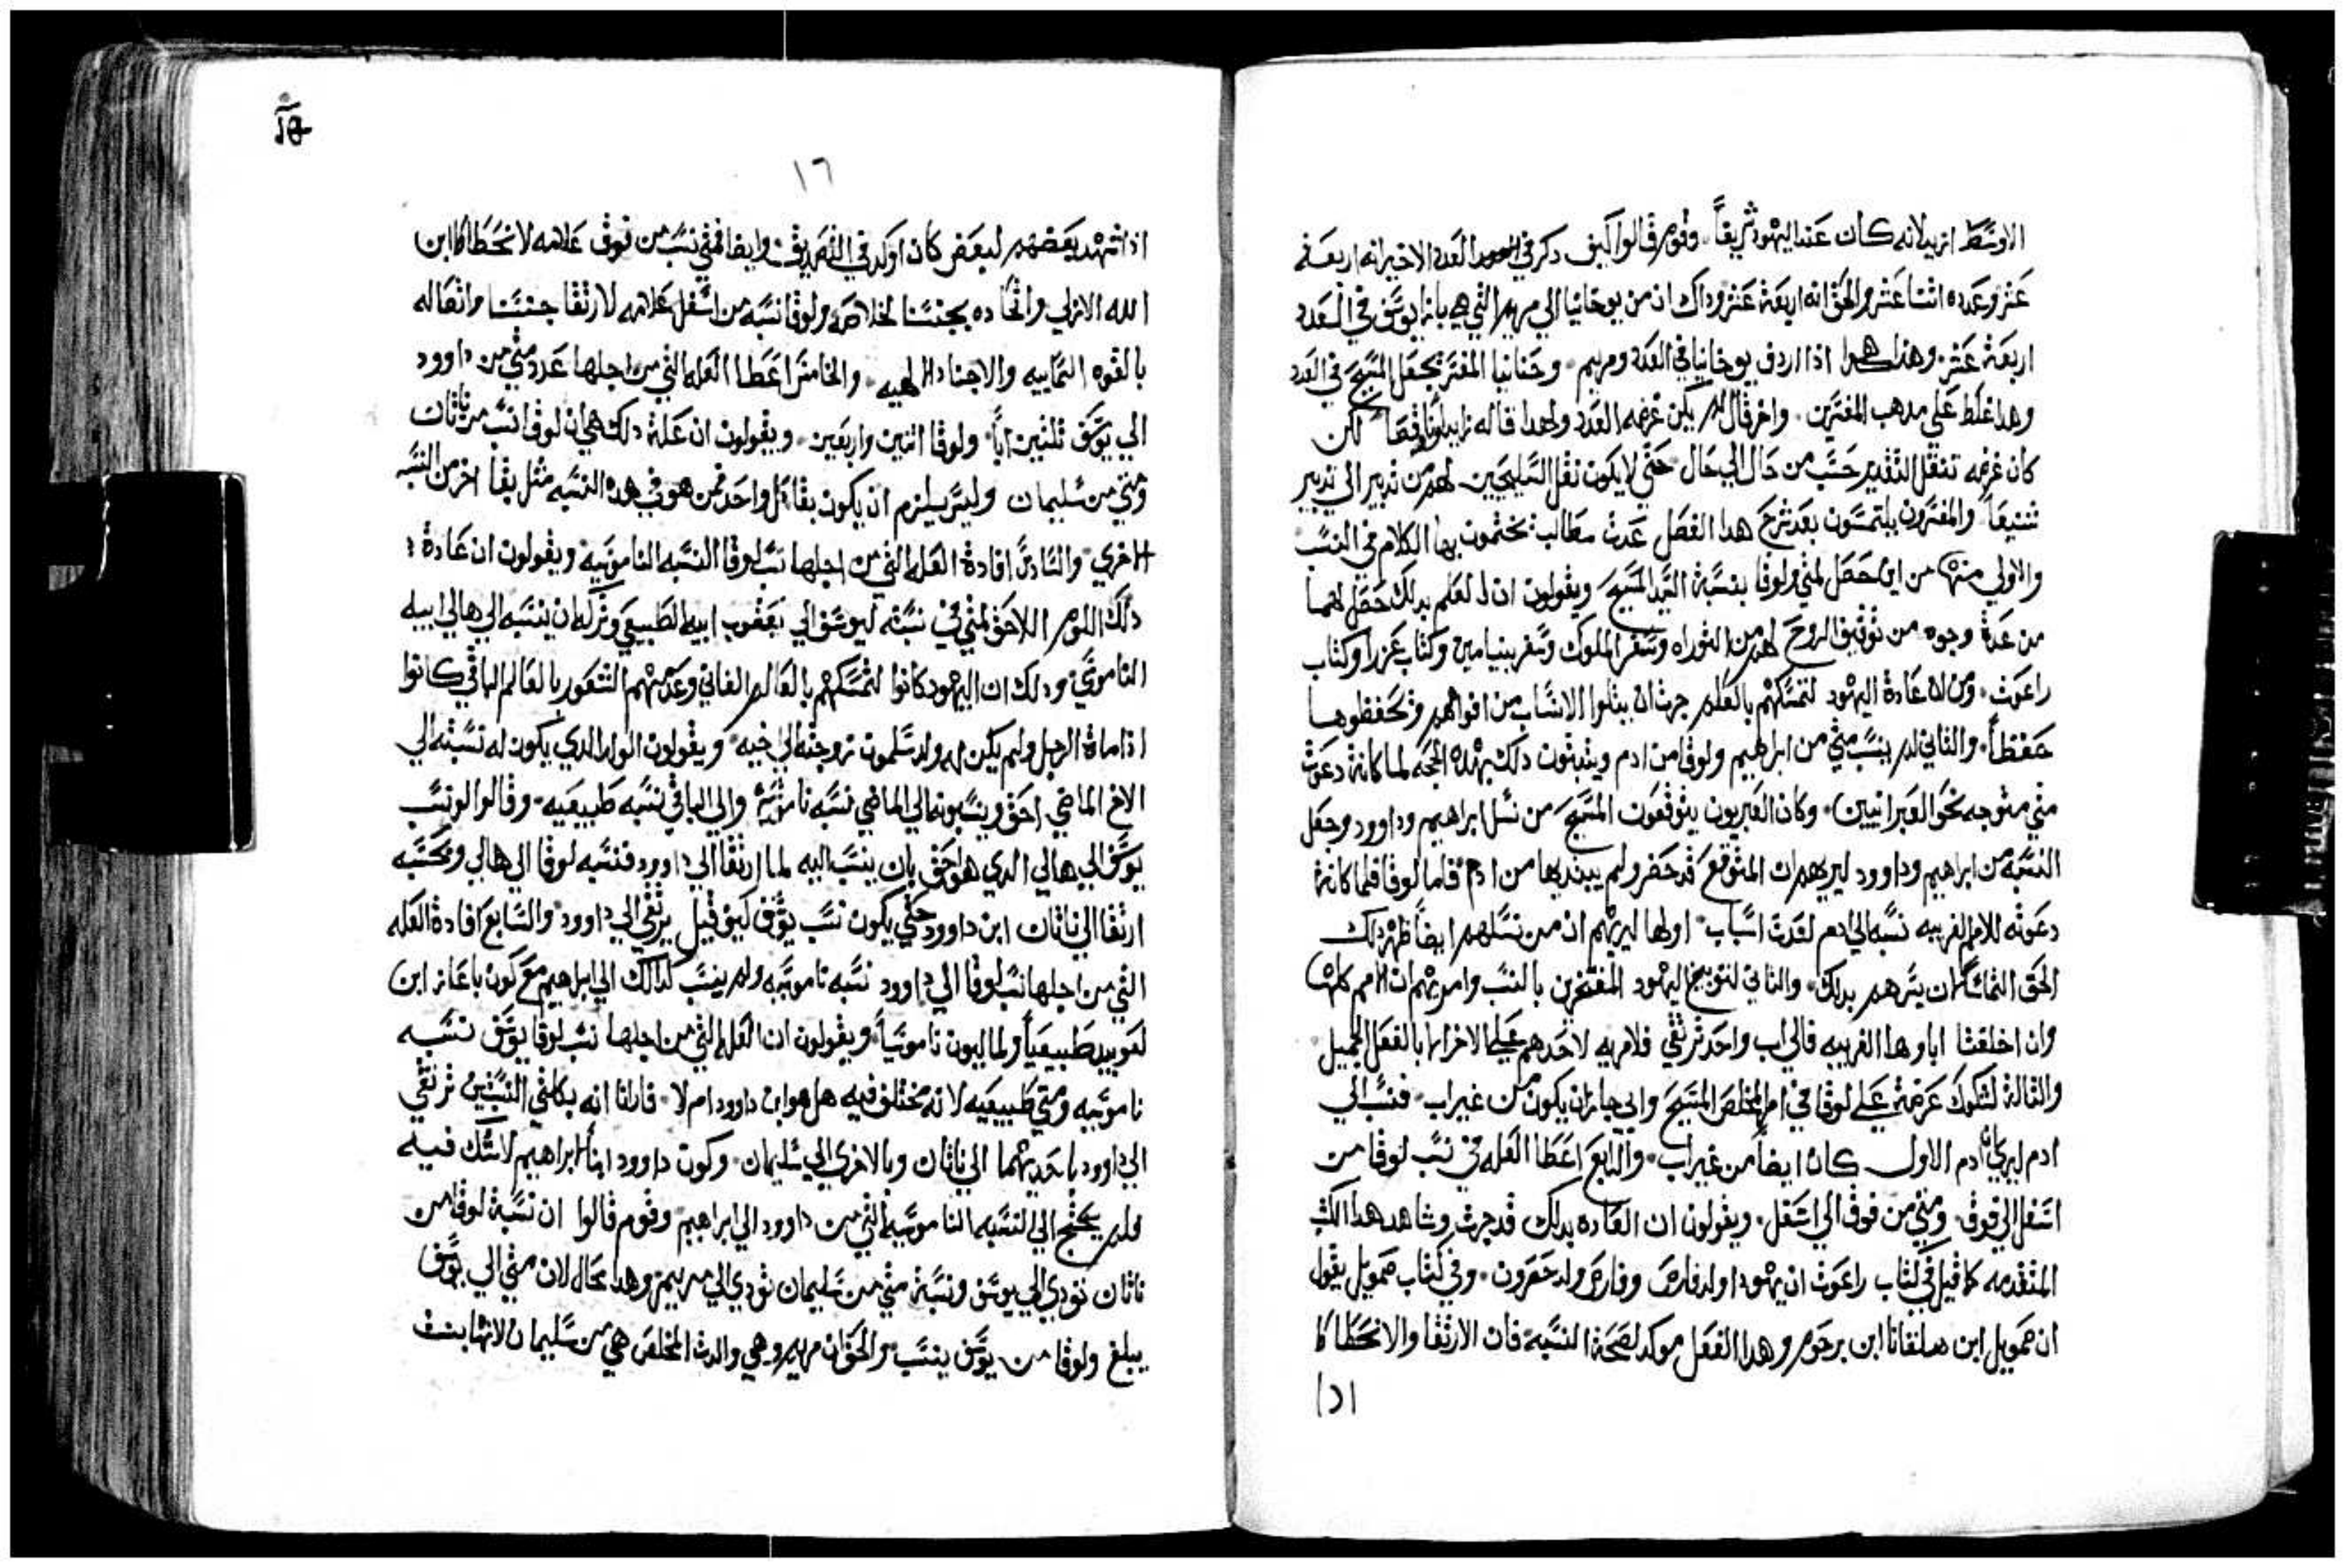 الاوسط ازيد لانه كان عند اليهود شريفاً وقوم قالوا كيف ذكر في العدد الاخير انه اربعة
عشر وعدده اثنا عشر والحق انه اربعة عشر وداك ان من يوخانيا الي مريم التي هي بازا يوسف في العدد
اربعة عشر وهذا هكذا اذا اردف يوخانيا في العدد ومريم وحنانيا المفسر يجعل المسيح في العدد
وهدا غلط علي مدهب المفسرين واخر قال لم يكن غرضه العدد ولهدا قاله زايد وناقصا لكن
كان غرضه تنقل التدبير حسب من حال الي حال حتي لا يكون نقل السليحيين لهم من تدبير الي تدبير
شنيعاً والمفسرون يلتمسون بعد شرح هدا الفصل عدت مطالب يختمون بها الكلام في النسب
والاولي منها من اين حصل لمتي ولوقا بنسبة السيد المسيح ويقولون ان العلم بدلك حصل لهما
من عدة وجوه من توفيق الروح لهم من التوراه وسفر الملوك وسفر بنيامين وكتاب عزرا وكتاب
راعوت ومن ان عادة اليهود لتمسكهم بالعلم جرت ان يتلوا الانساب من افواههم وتحفظوها
حفظاً والثاني لم ينسب متي من ابراهيم ولوقا من ادم ويثبتون دلك بهده الحجه لما كانة دعوت
متي متوجه نحو العبرانيين وكان العبريون يتوقعون المسيح من نسل ابراهيم وداوود وجعل
النسبه من ابراهيم وداوود ليريهم ان المتوقع قد حضر ولم يبتديها من ادم فاما لوقا فلما كانة
دعوته للامم الغريبه نسبه الي ادم لعدت اسباب اولها ليريهم ان من نسلهم ايضاً ظهر دلك
الحق التماساً ان يسرهم بدلك والثاني لتوبيخ اليهود المفتخرين بالنسب وامر يهم ان الامم كلها
وان اختلفتا اباوها الغريبه فالي اب واحد ترتقي فلا مريه لاحدهم علي الاخر الا بالفعل الجميل
والثالة لشكوك عرضة علي لوقا في امر المخلص المسيح وانه جايز ان يكون من غير اب فنسب الي
ادم ليري ان ادم الاول كان ايضاً من غير اب والرابع اعطا العله في نسب لوقا من
اسفل الي فوق ومتي من فوق الي اسفل ويقولون ان العاده بدلك قد جرت وشاهد هدا الكتب
المتقدمه كما قيل في كتاب راعوت ان يهودا اولد فارص وفارص ولد حصرون وفي كتاب صمويل يقول
ان صمويل ابن هلقانا ابن يرحوم وهدا الفعل موكد لصحة النسبه فان الارتقا والانحطاط
اذا شهد بعضهم لبعض كان اوكد في التصديق وايضا فمتي نسب من فوق علامه لانحطاط ابن
الله الازلي واتحاده بجنسنا لخلاصه ولوقا نسبه من اسفل علامه لارتقا جنسنا واتصاله
بالقوه السماييه والاجناد الالهيه والخامس اعطا العله التي من اجلها عدد متي من داوود
الي يوسف ثلثين اباً ولوقا اثنين واربعين ويقولون ان علة دلك هي ان لوقا نسب من ناثان
ومتي من سليمان وليس يلزم ان يكون بقا كل واحد ممن هو في هده النسبه مثل بقا اخر من النسبه
الاخري والسادس افادة العله التي من اجلها نسب لوقا النسبه الناموسيه ويقولون ان عادة
دلك اللوم اللاحق لمتي في نسبته ليوسف الي يعقوب ابيه الطبيعي وتركه ان ينسبه الي هالي ابيه
الناموسي ودلك ان اليهود كانوا لتمسكهم بالعالم الفاني وعدمهم الشعور بالعالم الباقي كانوا
اذا ماة الرجل ولم يكن له ولد يسلمون زوجته الي اخيه ويقولون الولد الدي يكون له نسبته الي
الاخ الماضي احق وينسبونه الي الماضي نسبه ناموسيه والي الباقي نسبه طبيعيه وقالوا لو نسب
يوسف الي هالي الدي هو احق بان ينسب اليه لما ارتقا الي داوود فنسبه لوقا الي هالي وبحسبه
ارتقا الي ناثان ابن داوود حتي يكون نسب يوسف كيف قيل يرتقي الي داوود والسابع افادة العله
التي من اجلها نسب لوقا الي داوود نسبه ناموسيه ولم ينسب كدالك الي ابراهيم مع كون باعاز ابن
لعوبيد طبيعياً ولماليون ناموسياً ويقولون ان العله التي من اجلها نسب لوقا يوسف نسبه
ناموسيه ومتي طبيعيه لانه يختلف فيه هل هو ابن داوود ام لا فابانا انه بكلتي النسبتين ترتقي
الي داوود باحديهما الي ناثان وبالاخري الي سليمان وكون داوود ابناً لابراهيم لا شك فيه
فلم يحتج الي النسبه الناموسيه التي من داوود الي ابراهيم وقوم قالوا ان نسبة لوقا من
ناثان تودي الي يوسف ونسبة متي من سليمان تودي الي مريم وهدا محال لان متي الي يوسف
يبلغ ولوقا من يوسف ينسب والحق ان مريم وهي والدت المخلص هي من سليمان لانها بنت
١٦